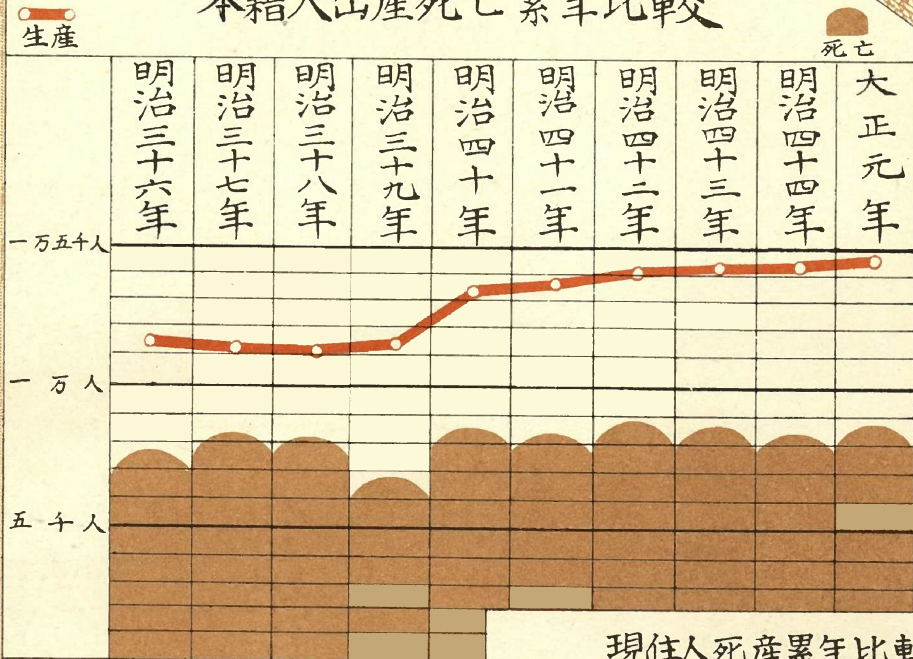 本籍人出産死亡累年比較
生産
死亡
明治三十六年
明治三十七年
明治三十八年
明治三十九年
明治四十年
明治四十一年
明治四十二年
明治四十三年
明治四十四年
大正元年
一万五千人
一万人
五千人
現住人死産累年比較